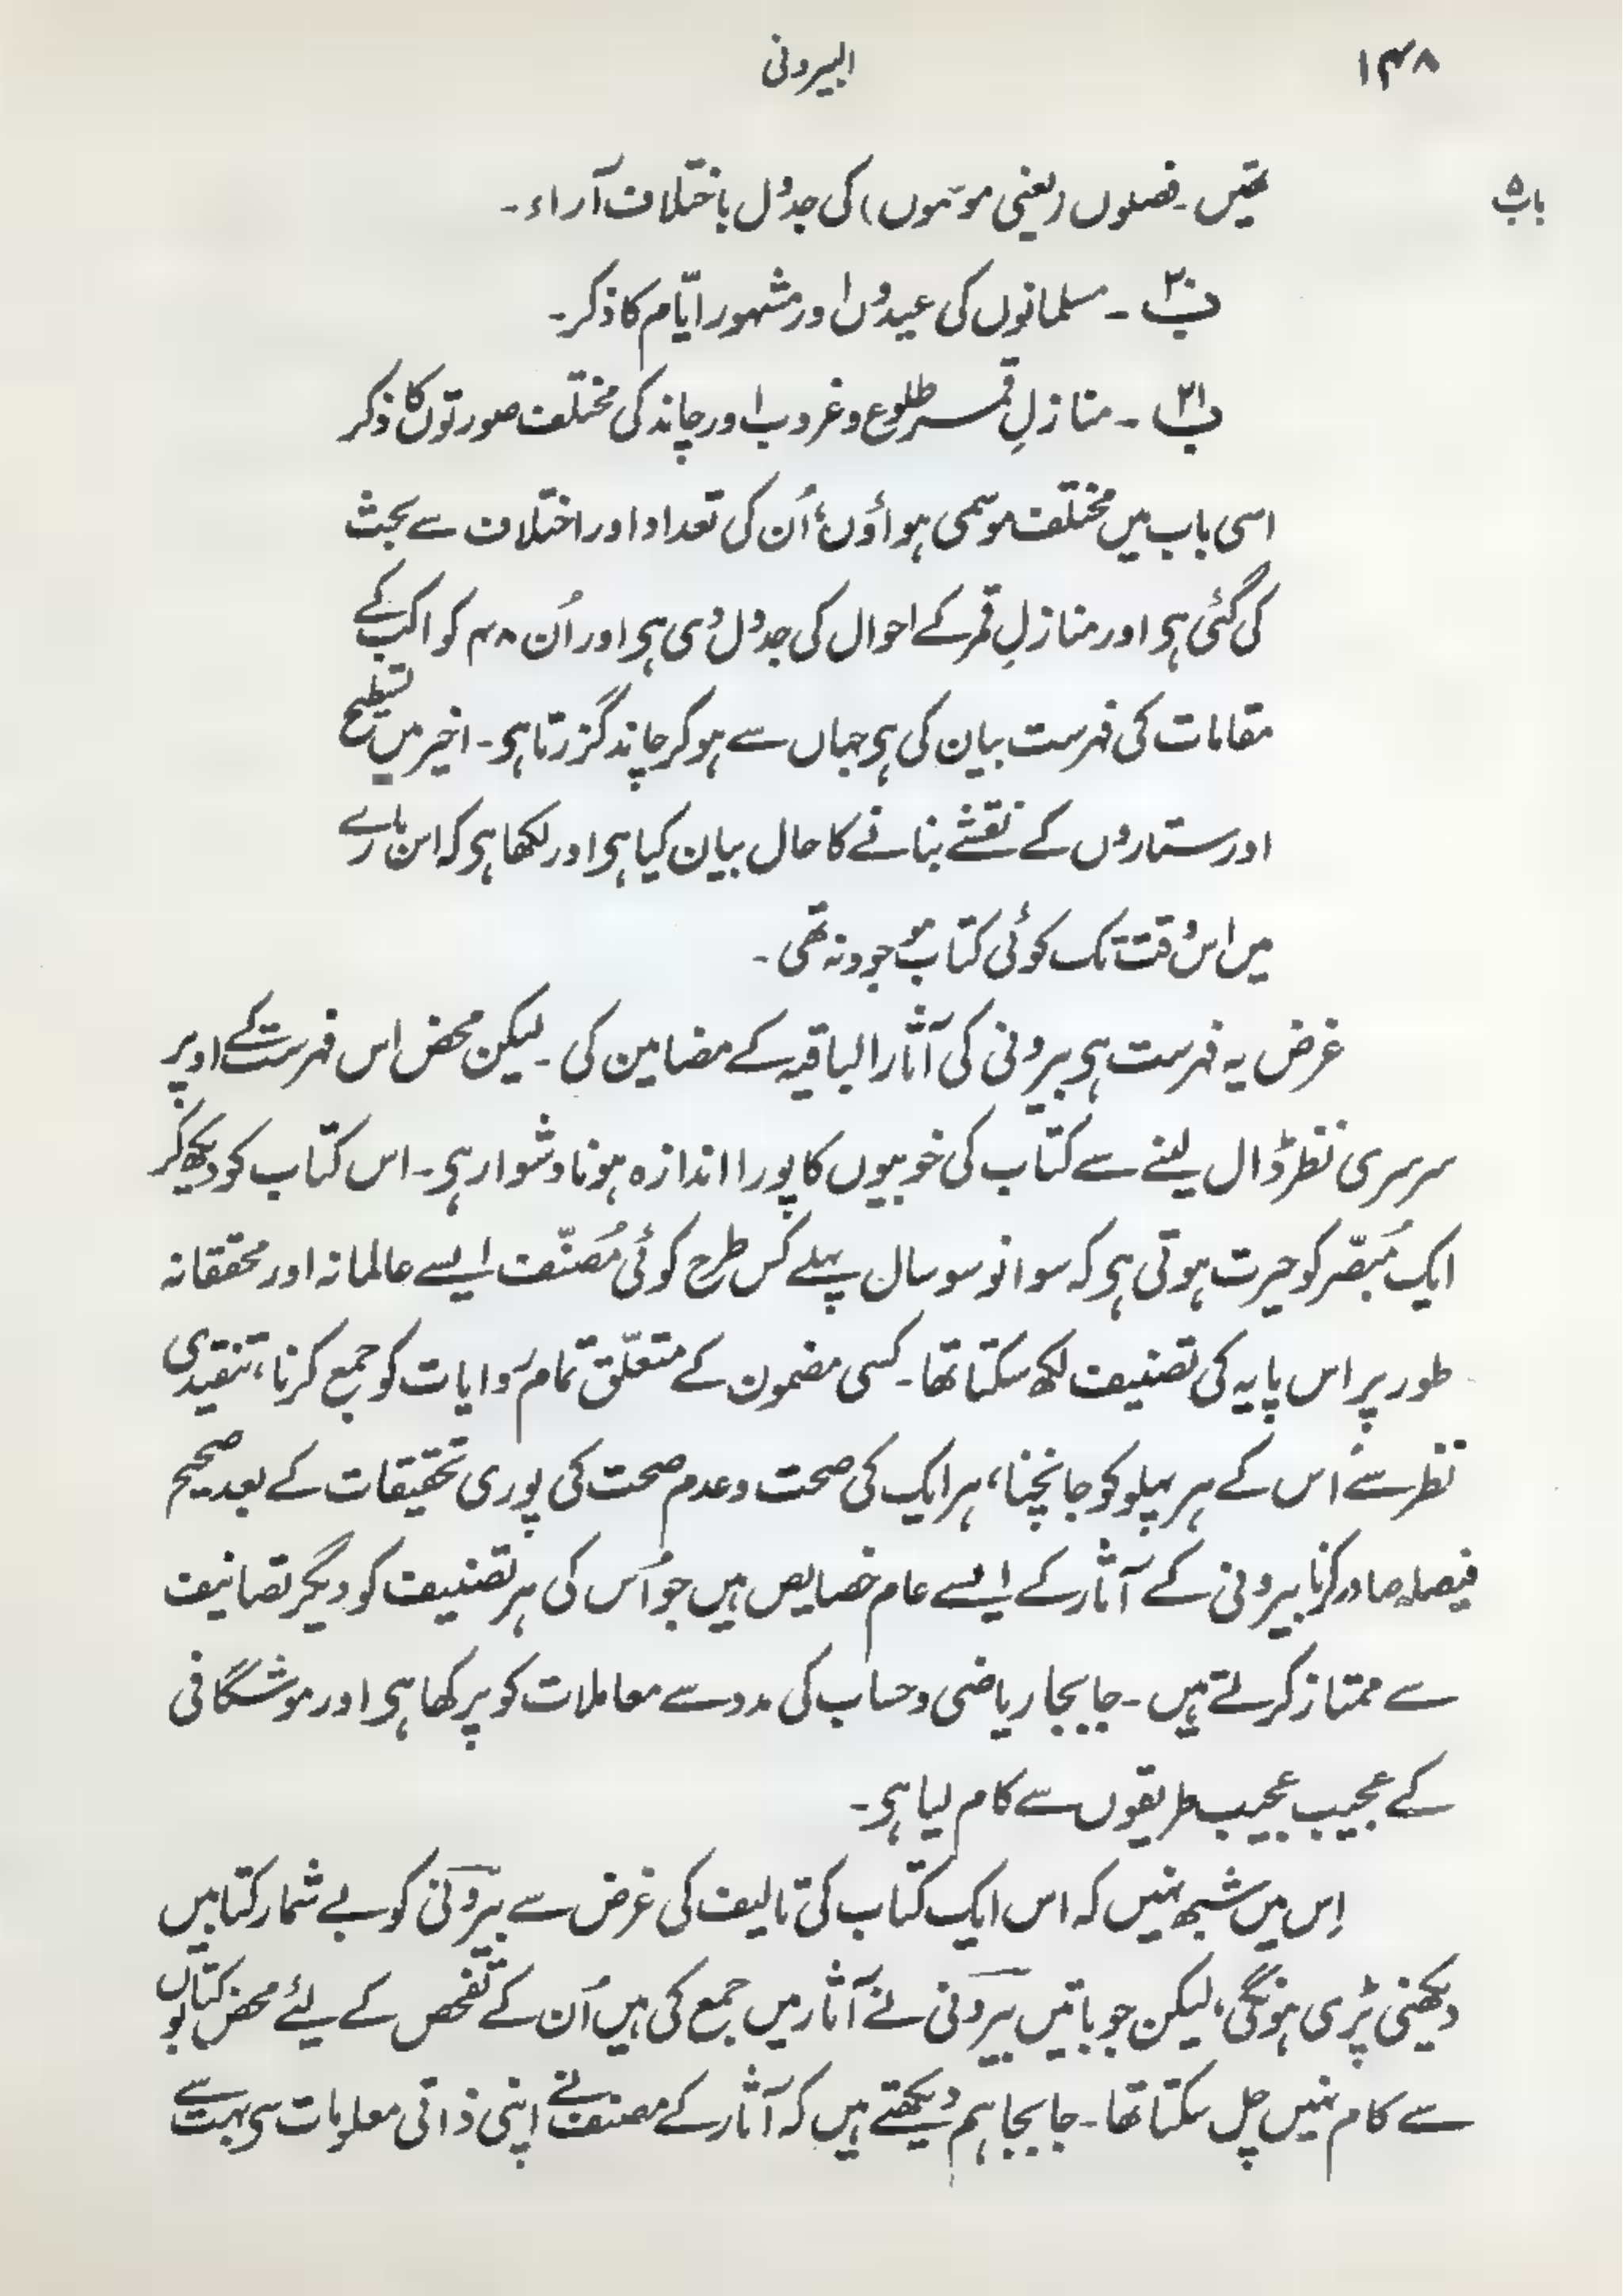 ۱۴۸
البیرونی
باب ۵
تھیں۔ فصلوں (یعنی موسموں) کی جدول باختلاف آراء۔
ب ۲۰۔ مسلمانوں کی عیدوں اور مشہور ایّام کا ذکر۔
ب ۲۱۔ منازلِ قمر طلوع و غروب اور چاند کی مختلف صورتوں کا ذکر
اسی باب میں مختلف موسمی ہواؤں، اُن کی تعداد اور اختلاف سے بحث
کی گئی ہی اور منازلِ قمر کے احوال کی جدول دی ہی اور اُن ۴۸ کواکب کے
مقامات کی فہرست بیان کی ہی جہاں سے ہو کر چاند گزرتا ہی۔ اخیر میں تسطیح
اور ستاروں کے نقشے بنانے کا حال بیان کیا ہی اور لکھا ہی کہ اس بارے
میں اس وقت تک کوئی کتاب موجود نہ تھی۔
غرض یہ فہرست ہی بیرونی کی آثار الباقیہ کے مضامین کی۔ لیکن محض اس فہرست کے اوپر
سرسری نظر ڈال لینے سے کتاب کی خوبیوں کا پورا اندازہ ہونا دشوار ہی۔ اس کتاب کو دیکھ کر
ایک مُبصّر کو حیرت ہوتی ہی کہ سوا نو سو سال پہلے کس طرح کوئی مُصنّف ایسے عالمانہ اور محققانہ
طور پر اس پایہ کی تصنیف لکھ سکتا تھا۔ کسی مضمون کے متعلّق تمام روایات کو جمع کرنا، تنقیدی
نظر سے اُس کے ہر پہلو کو جانچنا، ہر ایک کی صحت و عدم صحت کی پوری تحقیقات کے بعد صحیح
فیصلہ صادر کرنا بیرونی کے آثار کے ایسے عام خصایص ہیں جو اُس کی ہر تصنیف کو دیگر تصانیف
سے ممتاز کرتے ہیں۔ جابجا ریاضی و حساب کی مدد سے معاملات کو پرکھا ہی اور موشگافی
کے عجیب عجیب طریقوں سے کام لیا ہی۔
اِس میں شبھ نہیں کہ اس ایک کتاب کی تالیف کی غرض سے بیرونی کو بے شمار کتابیں
دیکھنی پڑی ہونگی، لیکن جو باتیں بیرونی نے آثار میں جمع کی ہیں اُن کے تفحص کے لیئے محض کتابوں
سے کام نہیں چل سکتا تھا۔ جابجا ہم دیکھتے ہیں کہ آثار کے مصنف نے اپنی ذاتی معلومات سی بہت سے